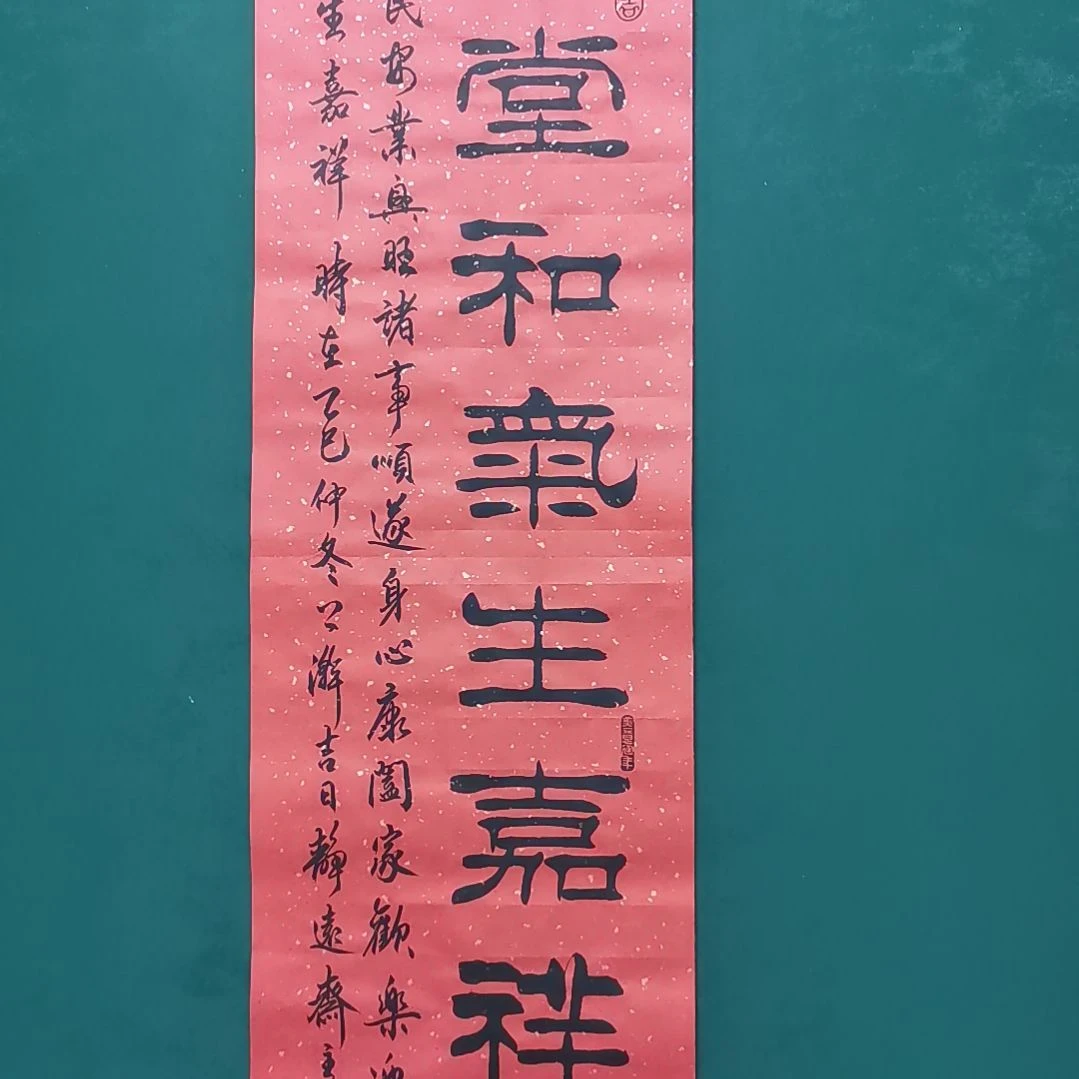 堂和氣生嘉祥
民安業興旺諸事順遂身心康闔家歡樂
生嘉祥時在乙巳仲冬上澣吉日靜遠齋主